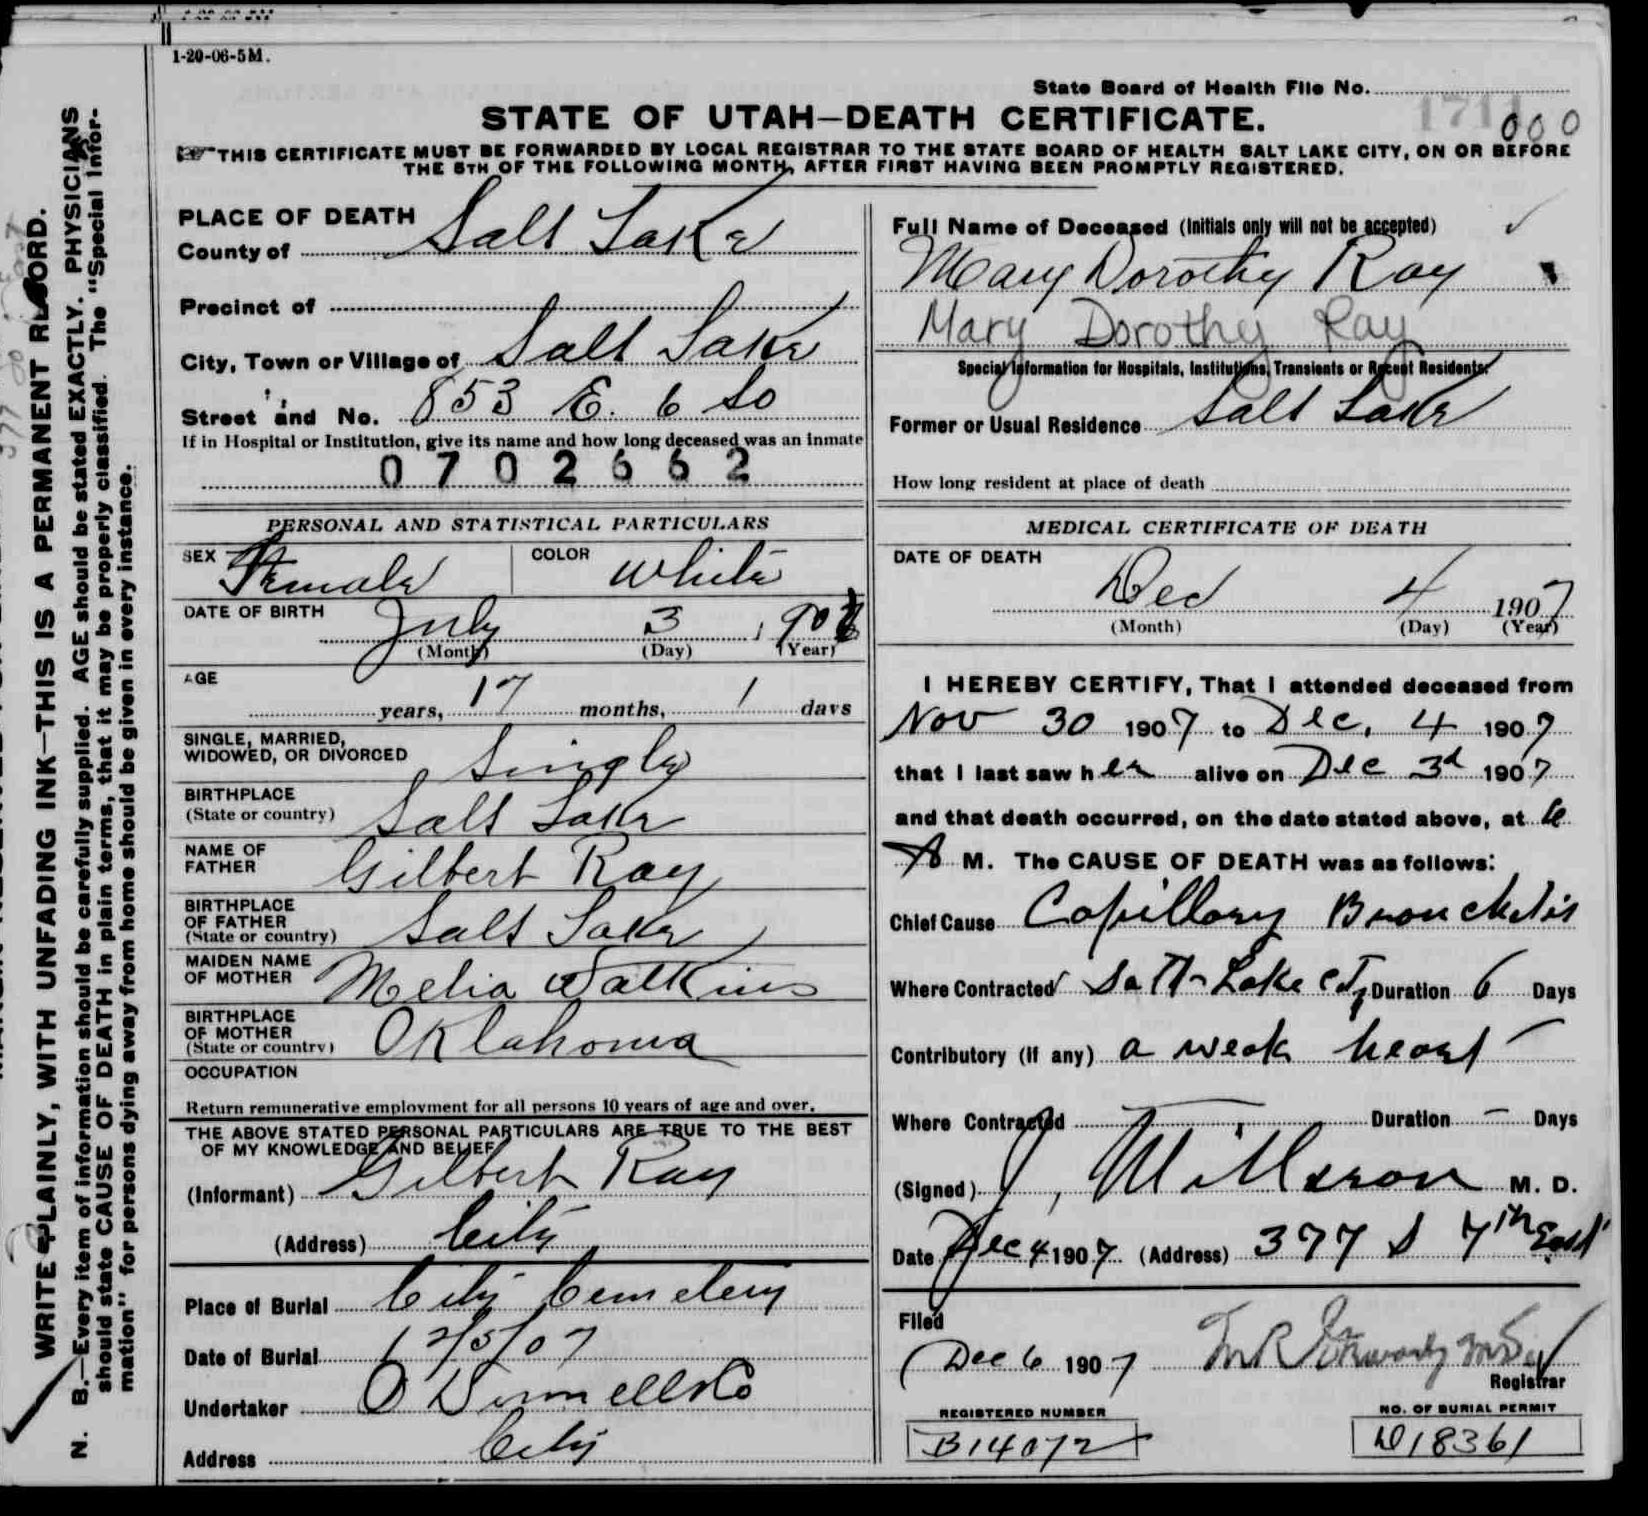 1-20-06-5M.
State Board of Health File No.
1711 000
STATE OF UTAH—DEATH CERTIFICATE.
THIS CERTIFICATE MUST BE FORWARDED BY LOCAL REGISTRAR TO THE STATE BOARD OF HEALTH SALT LAKE CITY, ON OR BEFORE
THE 5TH OF THE FOLLOWING MONTH, AFTER FIRST HAVING BEEN PROMPTLY REGISTERED.
WRITE PLAINLY, WITH UNFADING INK—THIS IS A PERMANENT RECORD.
N. B.—Every item of information should be carefully supplied. AGE should be stated EXACTLY. PHYSICIANS
should state CAUSE OF DEATH in plain terms, that it may be properly classified. The "Special Infor-
mation" for persons dying away from home should be given in every instance.
PLACE OF DEATH
County of Salt Lake
Precinct of
City, Town or Village of Salt Lake
Street and No. 853 E. 6 So
If in Hospital or Institution, give its name and how long deceased was an inmate
0702662
PERSONAL AND STATISTICAL PARTICULARS
SEX Female COLOR White
DATE OF BIRTH July 3
(Month) (Day) (Year)
AGE
years, 17 months, 1 days
SINGLE, MARRIED,
WIDOWED, OR DIVORCED Single
BIRTHPLACE
(State or country) Salt Lake
NAME OF
FATHER Gilbert Ray
BIRTHPLACE
OF FATHER
(State or country) Salt Lake
MAIDEN NAME
OF MOTHER Melia Watkins
BIRTHPLACE
OF MOTHER
(State or country) Oklahoma
OCCUPATION
Return remunerative employment for all persons 10 years of age and over.
THE ABOVE STATED PERSONAL PARTICULARS ARE TRUE TO THE BEST
OF MY KNOWLEDGE AND BELIEF
(Informant) Gilbert Ray
(Address) City
Place of Burial City Cemetery
Date of Burial 12/5/07
Undertaker O Donnell & Co
Address City
Full Name of Deceased (Initials only will not be accepted)
Mary Dorothy Ray
Mary Dorothy Ray
Special Information for Hospitals, Institutions, Transients or Recent Residents.
Former or Usual Residence Salt Lake
How long resident at place of death
MEDICAL CERTIFICATE OF DEATH
DATE OF DEATH
Dec 4 1907
(Month) (Day) (Year)
I HEREBY CERTIFY, That I attended deceased from
Nov 30 1907 to Dec. 4 1907
that I last saw her alive on Dec 3d 1907
and that death occurred, on the date stated above, at 6
A M. The CAUSE OF DEATH was as follows:
Chief Cause Capillary Bronchitis
Where Contracted Salt Lake City Duration 6 Days
Contributory (if any) a weak heart
Where Contracted Duration — Days
(Signed) J. M. D.
Date Dec 4 1907. (Address) 377 S 7th East
Filed
Dec 6 1907
Registrar
REGISTERED NUMBER
B14072
NO. OF BURIAL PERMIT
D18361